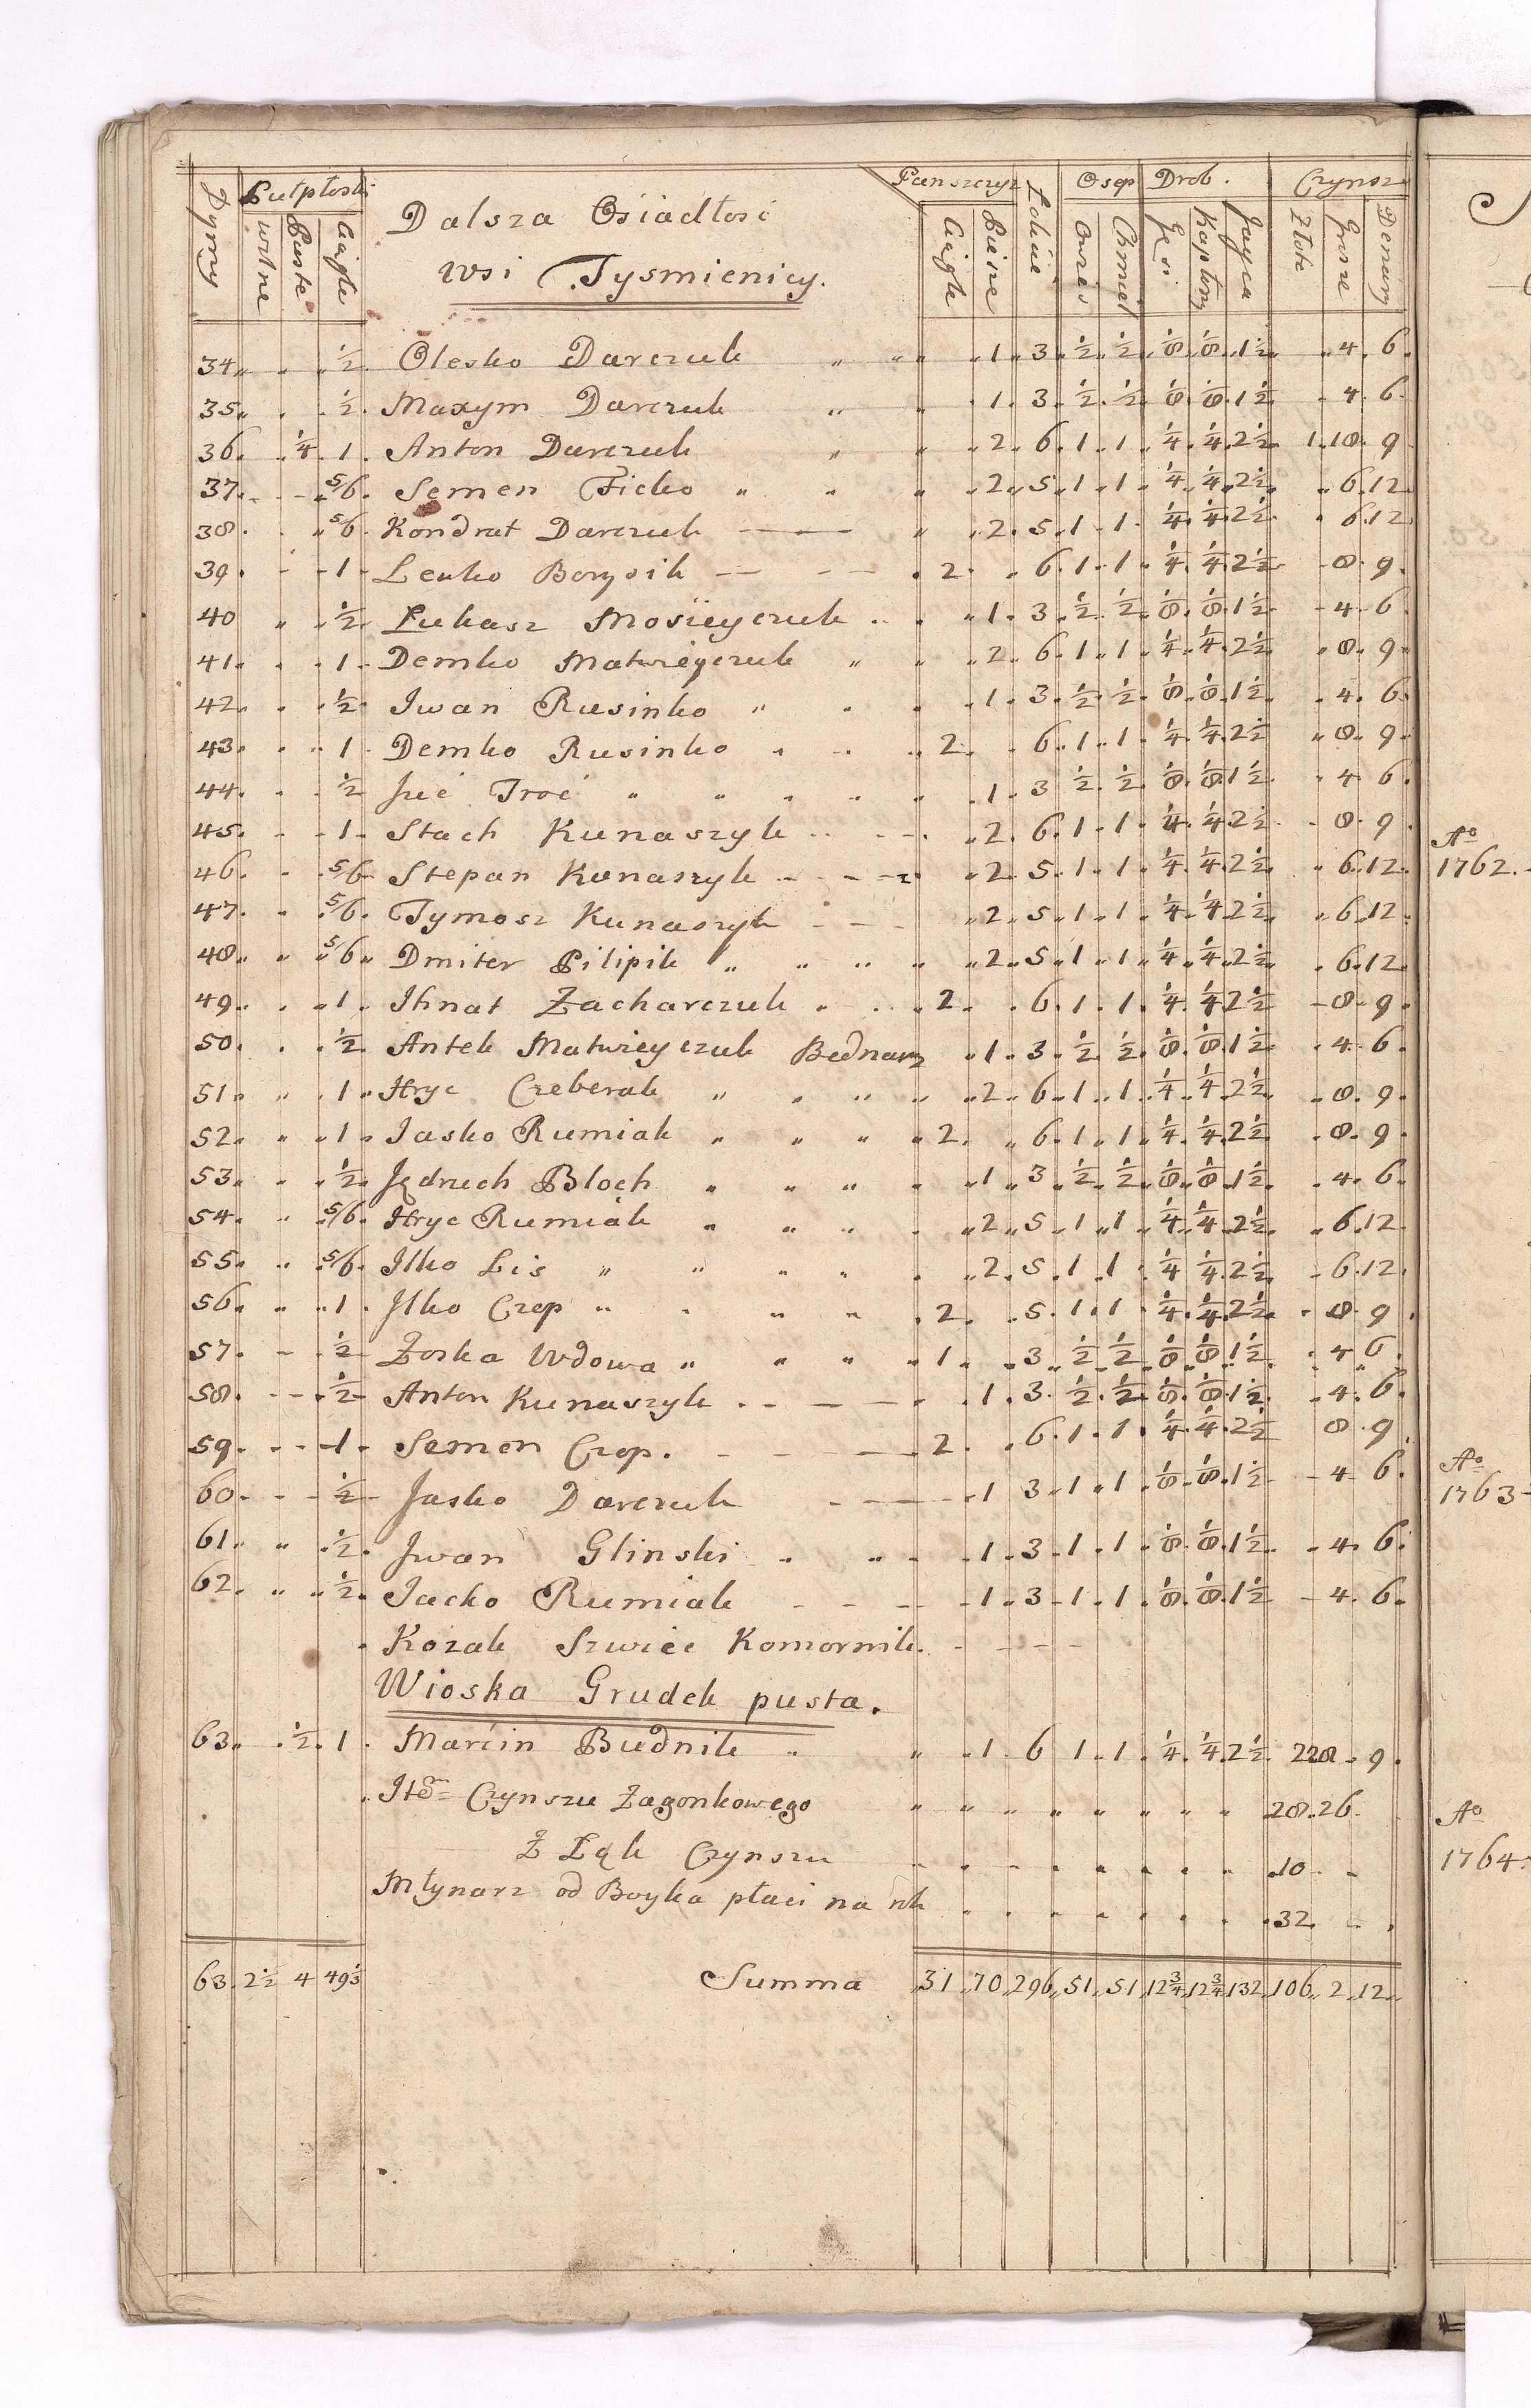 Dymy Pułpłoski Dalsza Osiadłosc Panszczyz Łokcie Osep Drob. Czynsz
wolne Puste Ciągłe wsi Tysmienicy. Ciągłe Piesze Owies Chmiel Gęsi Kapłony Jayca Złote Grosze Denary
34 ½ Olesko Darczuk 1 3 ½ ½ ⅛ ⅛ 1½ 4 6
35 ½ Maxym Darczuk 1 3 ½ ½ ⅛ ⅛ 1½ 4 6
36 ¼ 1 Anton Darczuk 2 6 1 1 ¼ ¼ 2½ 1 18 9
37 5/6 Semen Ficko 2 5 1 1 ¼ ¼ 2½ 6 12
38 5/6 Kondrat Darczuk 2 5 1 1 ¼ ¼ 2½ 6 12
39 1 Lenko Borysik 2 6 1 1 ¼ ¼ 2½ 8 9
40 ½ Łukasz Mosiieyczuk 1 3 ½ ½ ⅛ ⅛ 1½ 4 6
41 1 Demko Matwieyczuk 2 6 1 1 ¼ ¼ 2½ 8 9
42 ½ Iwan Rusinko 1 3 ½ ½ ⅛ ⅛ 1½ 4 6
43 1 Demko Rusinko 2 6 1 1 ¼ ¼ 2½ 8 9
44 ½ Juć Troć 1 3 ½ ½ ⅛ ⅛ 1½ 4 6
45 1 Stach Kunaszyk 2 6 1 1 ¼ ¼ 2½ 8 9
46 5/6 Stepan Kunaszyk 2 5 1 1 ¼ ¼ 2½ 6 12
47 5/6 Tymosz Kunaszyk 2 5 1 1 ¼ ¼ 2½ 6 12
48 5/6 Dmiter Pilipik 2 5 1 1 ¼ ¼ 2½ 6 12
49 1 Ihnat Zacharczuk 2 6 1 1 ¼ ¼ 2½ 8 9
50 ½ Antek Matwieyczuk Bednarz 1 3 ½ ½ ⅛ ⅛ 1½ 4 6
51 1 Hryc Czeberak 2 6 1 1 ¼ ¼ 2½ 8 9
52 1 Iasko Rumiak 2 6 1 1 ¼ ¼ 2½ 8 9
53 ½ Jędruch Bloch 1 3 ½ ½ ⅛ ⅛ 1½ 4 6
54 5/6 Hryc Rumiak 2 5 1 1 ¼ ¼ 2½ 6 12
55 5/6 Ilko Lis 2 5 1 1 ¼ ¼ 2½ 6 12
56 1 Ilko Czop 2 5 1 1 ¼ ¼ 2½ 8 9
57 ½ Zoska Wdowa 1 3 ½ ½ ⅛ ⅛ 1½ 4 6
58 ½ Anton Kunaszyk 1 3 ½ ½ ⅛ ⅛ 1½ 4 6
59 1 Semen Czop. 2 6 1 1 ¼ ¼ 2½ 8 9
60 ½ Jasko Darczuk 1 3 1 1 ⅛ ⅛ 1½ 4 6
61 ½ Jwan Glinski 1 3 1 1 ⅛ ⅛ 1½ 4 6
62 ½ Iacko Rumiak 1 3 1 1 ⅛ ⅛ 1½ 4 6
Kozak Szwiec Komornik.
Wioska Grudek pusta.
63 ½ 1 Marcin Budnik 1 6 1 1 ¼ ¼ 2½ 2 28 9
Itõ Czynszu Zagonkowego 28 26
Z Łąk Czynszu 10
Młynarz od Boyka płaci na rok 32
63 2½ 4 49⅓ Summa 31 70 296 51 51 12¾ 12¾ 132 106 2 12
Ao
1762.
Ao
1763
Ao
1764.